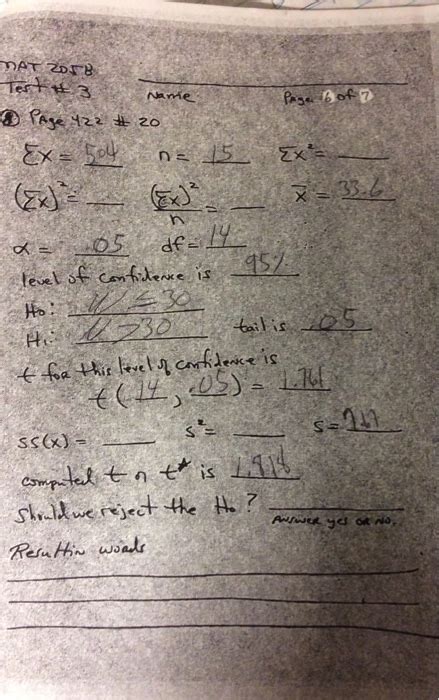 MAT 205B
Test # 3 Name Page 6 of 7
Page 422 # 20
Σx = 504 n = 15 Σx² = ___
(Σx)² = ___ (Σx)²/n = ___ x̄ = 33.6
α = .05 df = 14
level of confidence is 95%
Ho: U ≤ 30
H1: U > 30 tail is .05
t for this level of confidence is
t(14, .05) = 1.761
ss(x) = ___ s² = ___ s =
computed t or t* is 1.818
Should we reject the Ho? ___
Answer yes or no.
Result in words